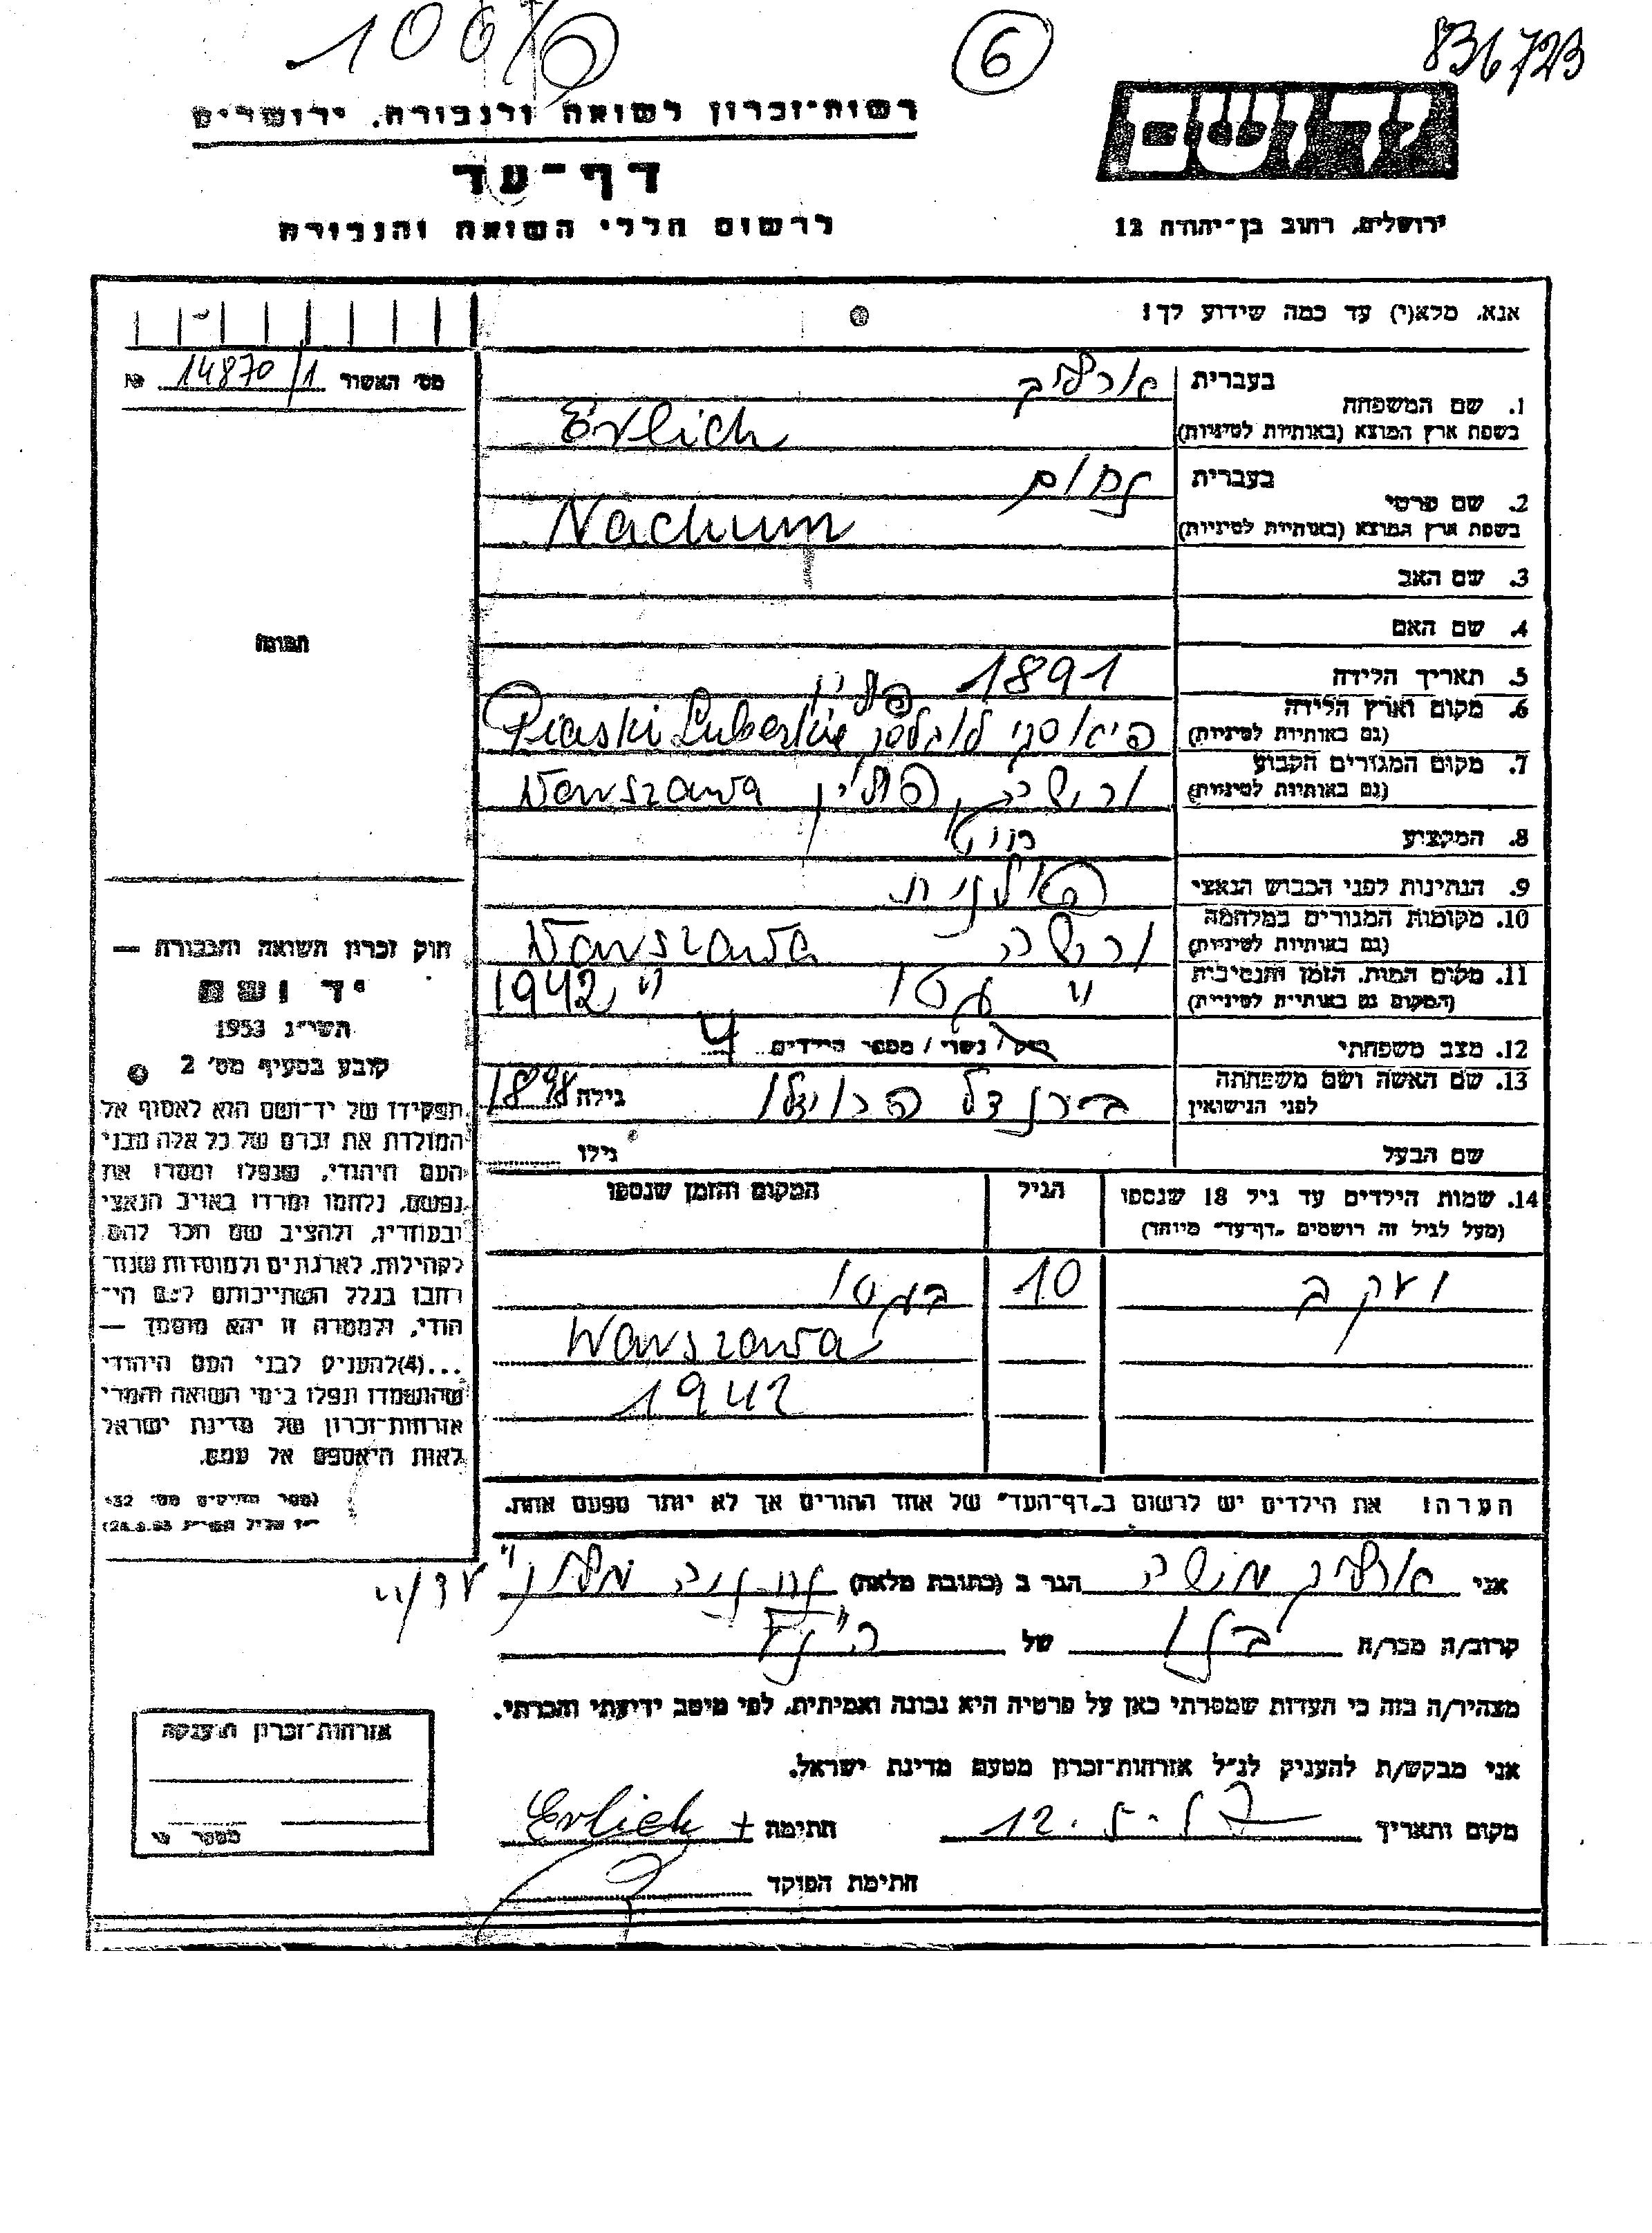 1006
6
831723
רשות-זכרון לשואה ולגבורה, ירושלים
דף-עד
לרשום חללי השואה והגבורה
יד ושם
ירושלים, רחוב בן-יהודה 12
אנא, מלא(י) עד כמה שידוע לך!
מס' האשור 14870/1 №
תמונה
1. שם המשפחה
בעברית ארליך
בשפת ארץ המוצא (באותיות לטיניות) Erlich
2. שם פרטי
בעברית נחום
בשפת ארץ המוצא (באותיות לטיניות) Nachum
3. שם האב
4. שם האם
5. תאריך הלידה 1891
6. מקום וארץ הלידה פולין
(גם באותיות לטיניות) Piaski Luberskie
7. מקום המגורים הקבוע
(גם באותיות לטיניות) ורשה, פולין Warszawa
8. המקצוע
9. הנתינות לפני הכבוש הנאצי פולנית
10. מקומות המגורים במלחמה
(גם באותיות לטיניות) ורשה Warszawa
11. מקום המות, הזמן והנסיבות
(המקום גם באותיות לטיניות) " גטו " 1942
12. מצב משפחתי רווק/ נשוי / מספר הילדים 4
13. שם האשה ושם משפחתה
לפני הנישואין ברנדל גילה 1898
שם הבעל גילו
14. שמות הילדים עד גיל 18 שנספו
(מעל לגיל זה רושמים "דף-עד" מיוחד)
הגיל
המקום והזמן שנספו
יעקב 10 בגטו
Warszawa
1942
הערה! את הילדים יש לרשום ב"דף-העד" של אחד ההורים אך לא יותר מפעם אחת.
חוק זכרון השואה והגבורה —
יד ושם
תשי"ג 1953
קובע בסעיף מס' 2
תפקידו של יד-ושם הוא לאסוף אל
המולדת את זכרם של כל אלה מבני
העם היהודי, שנפלו ומסרו את
נפשם, נלחמו ומרדו באויב הנאצי
ובעוזריו, ולהציב שם וזכר להם,
לקהילות, לארגונים ולמוסדות שנח־
רבו בגלל השתייכותם לעם הי־
הודי, ולמטרה זו יהא מוסמך —
...(4)להעניק לבני העם היהודי
שהושמדו ונפלו בימי השואה והמרי
אזרחות-זכרון של מדינת ישראל
לאות היאספם אל עמם.
אני ארליך משה הגר ב (כתובת מלאה) נתניה
קרוב/ה מכר/ה בנו של הנ"ל
מצהיר/ה בזה כי העדות שמסרתי כאן על פרטיה היא נכונה ואמיתית, לפי מיטב ידיעתי והכרתי.
אני מבקש/ת להעניק לנ"ל אזרחות-זכרון מטעם מדינת ישראל.
מקום ותאריך 12.5.57 חתימה + Erlich
חתימת הפוקד
אזרחות-זכרון הוענקה
מספר